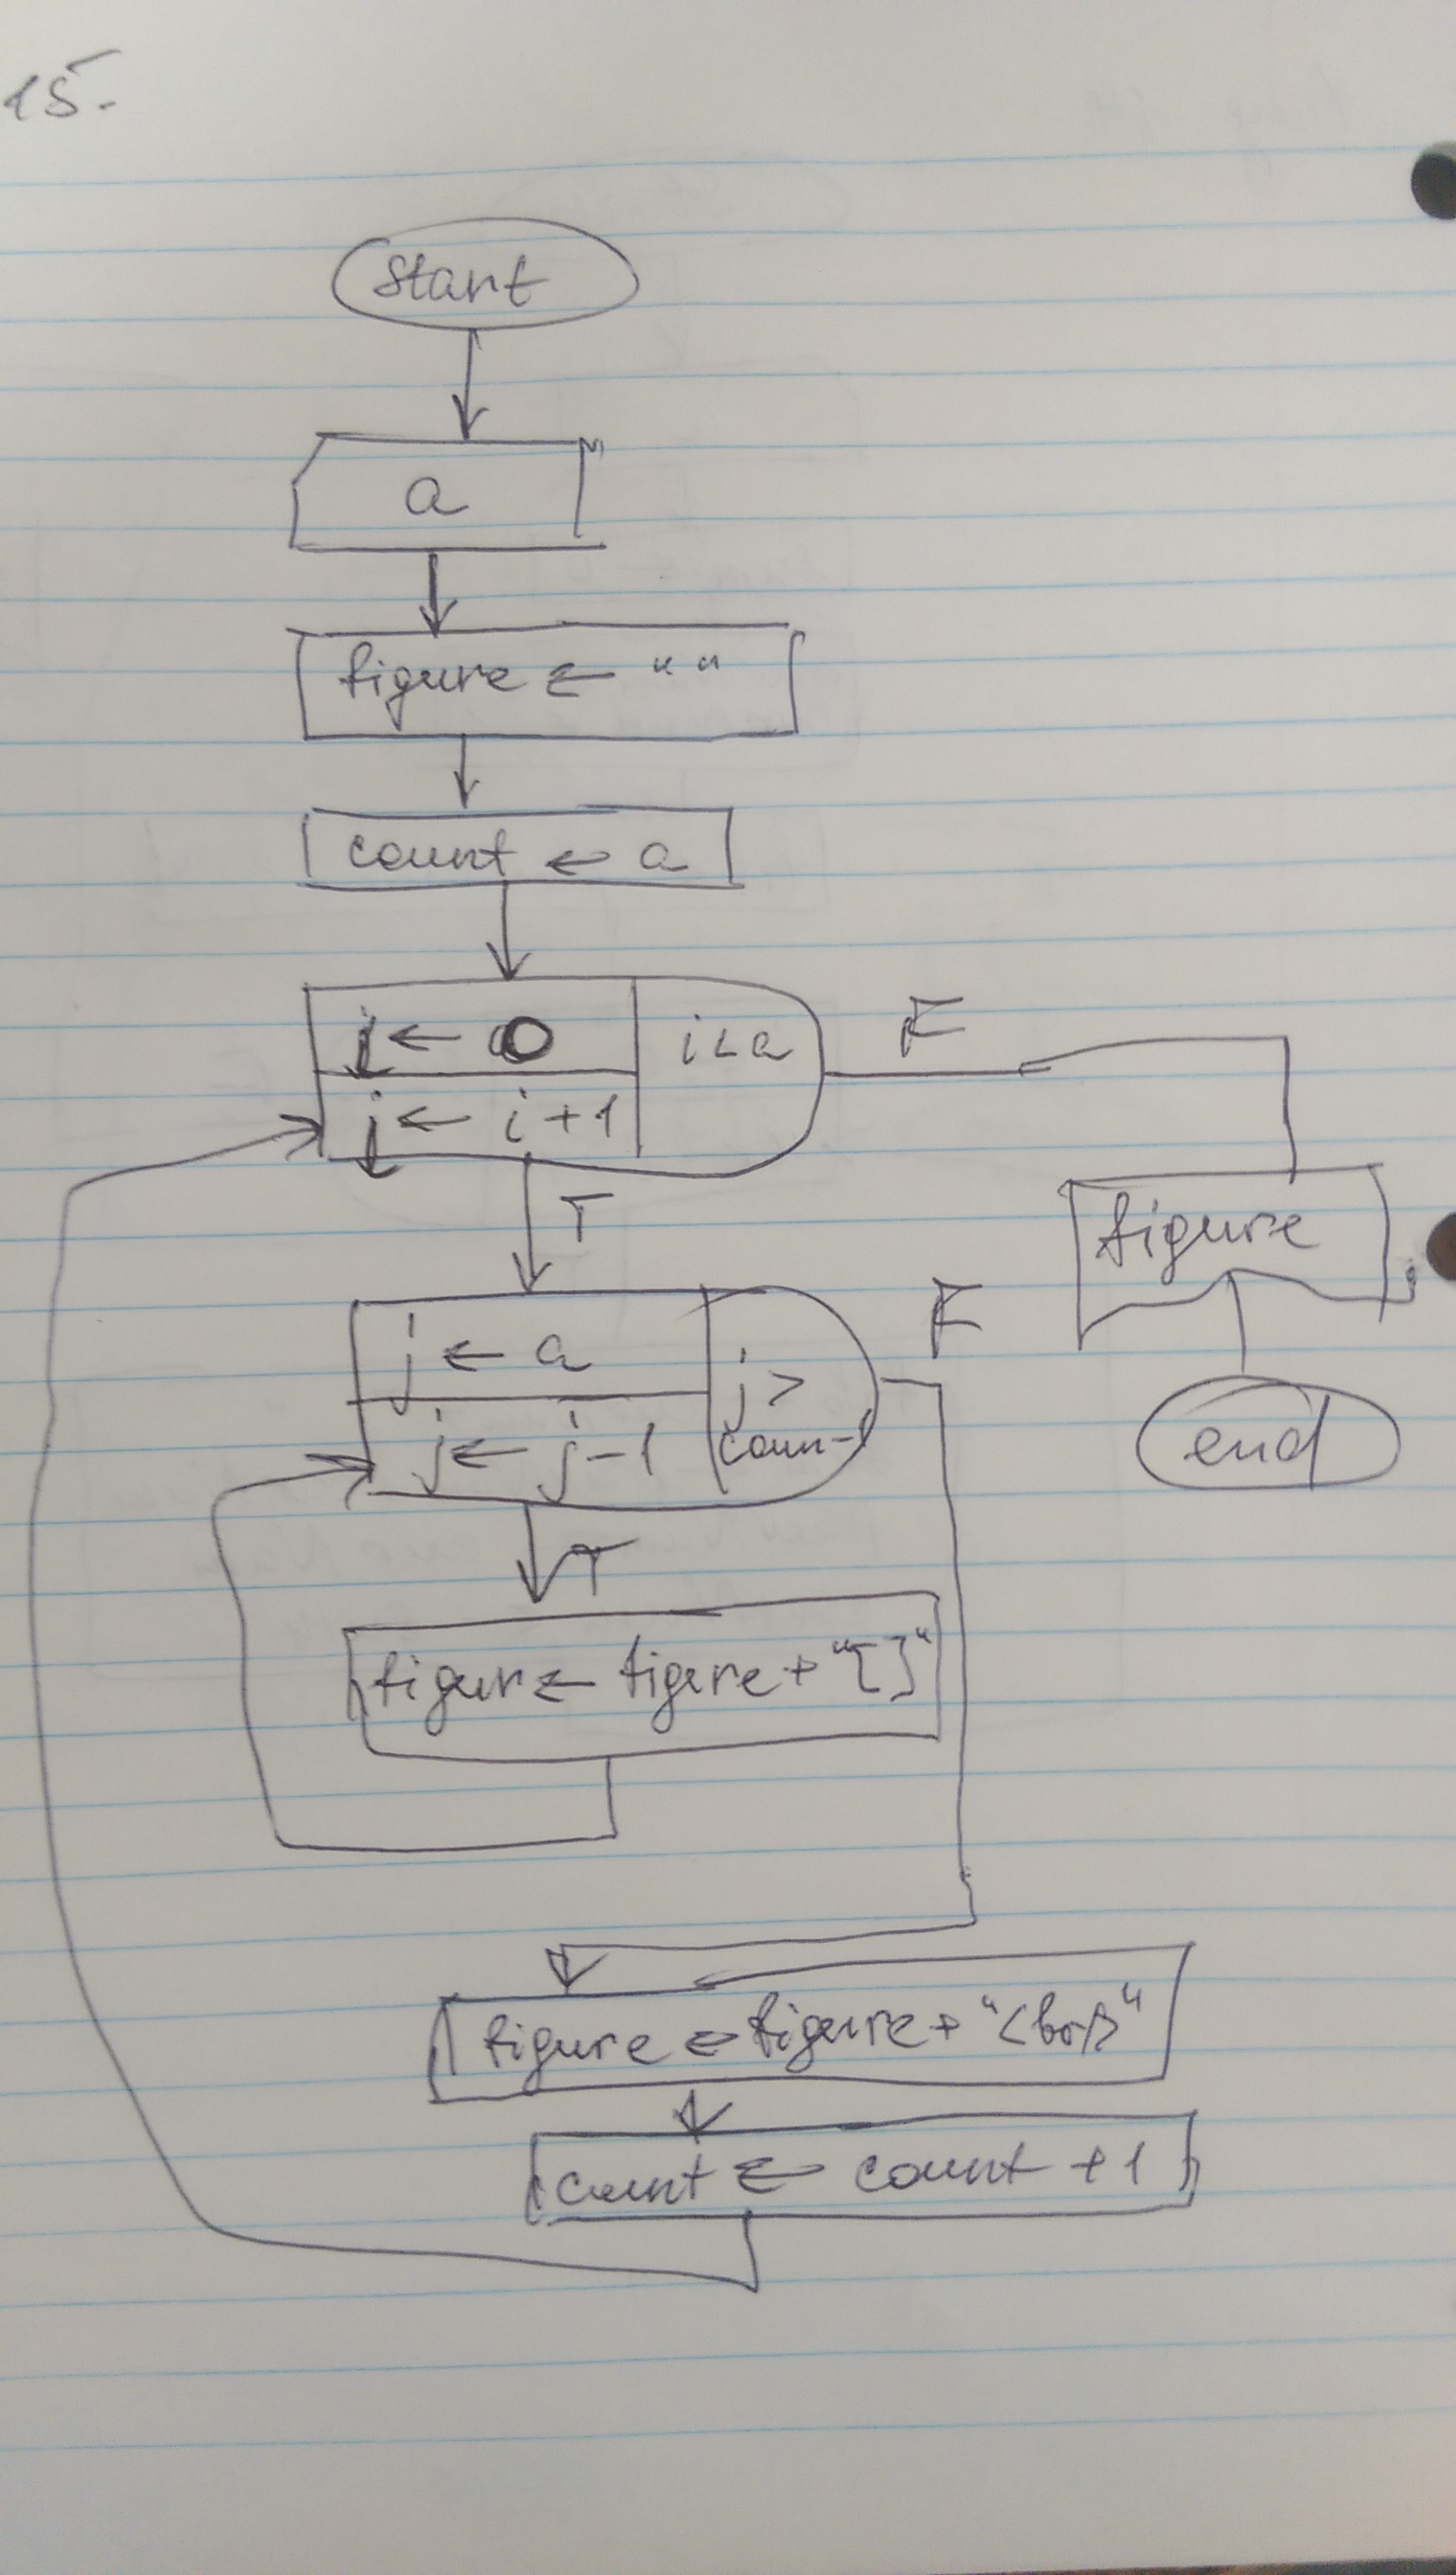 15.
start
a
figure ← " "
count ← a
i ← 0
i < a
F
i ← i + 1
T
figure
j ← a
j >
F
end
j ← j - 1
coun-1
T
figur ← figure + "[]"
figure ← figure + "<br/>"
count ← count + 1